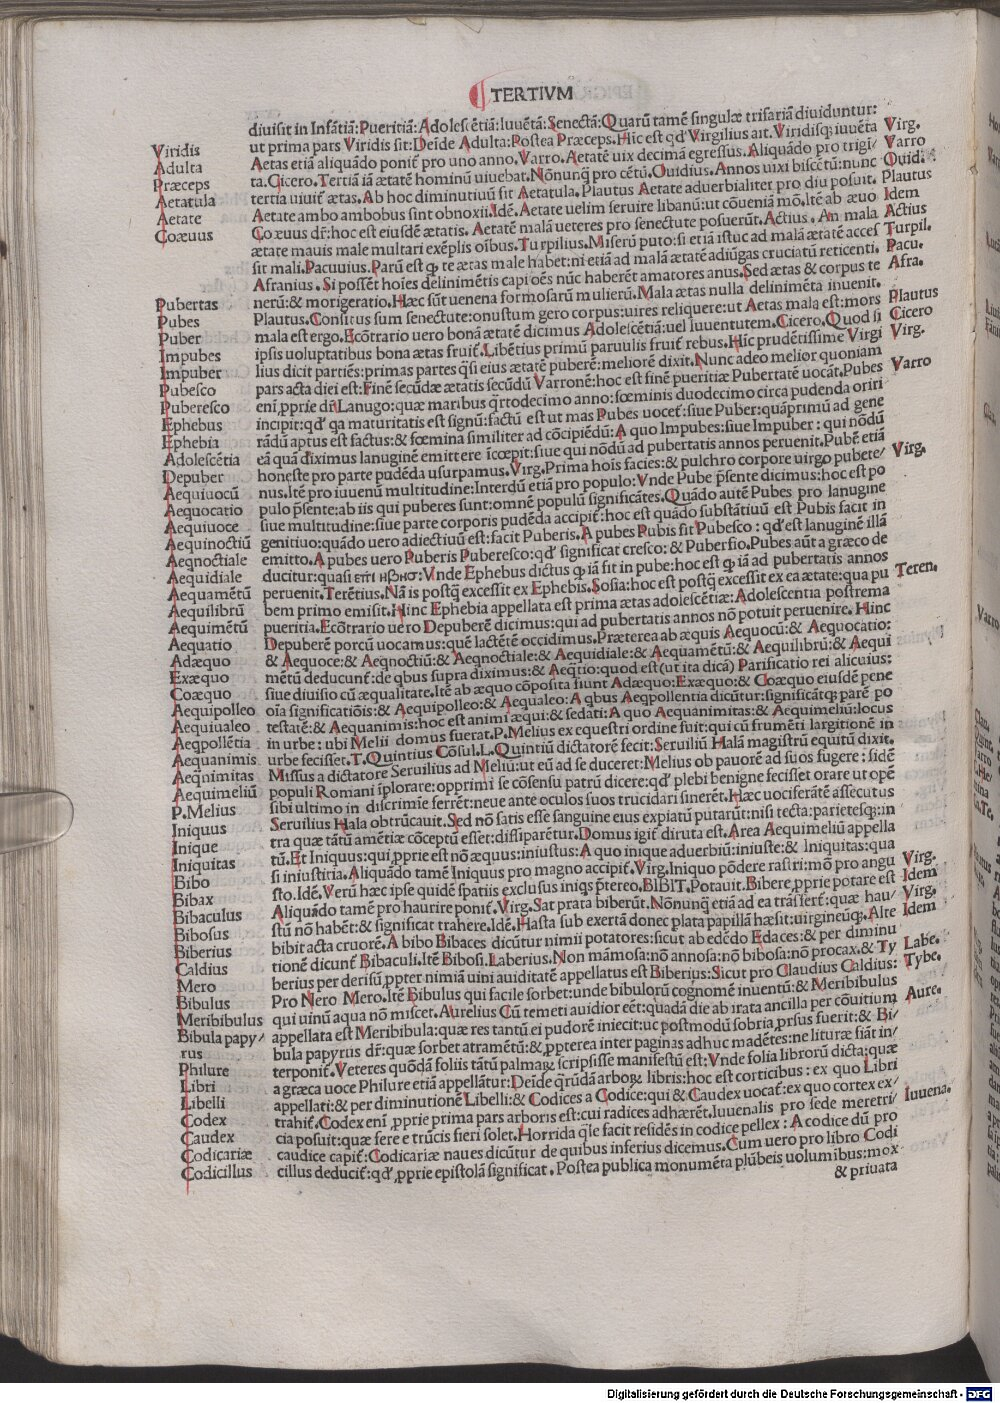 TERTIVM
diuisit in Infātiā: Pueritiā: Adolescētiā: Iuuētā: Senectā: Quarū tamē singulæ trifariā diuiduntur:
Viridis ut prima pars Viridis sit: Deīde Adulta: Postea Præceps. Hic est qd̕ Virgilius ait. Viridisq; iuuēta Virg.
Adulta Aetas etiā aliquādo poniť pro uno anno. Varro. Aetatē uix decimā egressus. Aliquādo pro trigī/ Varro
Præceps ta. Cicero. Tertiā iā ætatē hominū uiuebat. Nōnunq̄ pro cētū. Ouidius. Annos uixi biscētū: nunc Ouid.
Aetatula tertia uiuiť ætas. Ab hoc diminutiuū sit Aetatula. Plautus Aetate aduerbialiter pro diu posuit. Plautus
Aetate Aetate ambo ambobus sint obnoxii. Idē. Aetate uelim seruire libanū: ut cōueniā mō. Itē ab æuo Idem
Coæuus Coæuus dr̄: hoc est eiusdē ætatis. Aetatē malā ueteres pro senectute posuerūt. Actius. An mala Actius
ætate mauis male multari exēplis oībus. Turpilius. Miserū puto: si etiā istuc ad malā ætatē acces Turpil.
sit mali. Pacuuius. Parū est ꝙ te ætas male habet: ni etiā ad malā ætatē adiūgas cruciatū reticenti. Pacu.
Afranius. Si possēt hoīes deliniмētis capi oēs nūc haberēt amatores anus. Sed ætas & corpus te Afra.
Pubertas nerū: & morigeratio. Hæc sūt uenena formosarū mulierū. Mala ætas nulla delinimēta inuenit.
Pubes Plautus. Consitus sum senectute: onustum gero corpus: uires reliquere: ut Aetas mala est: mors Plautus
Puber mala est ergo. Ecōtrario uero bonā ætatē dicimus Adolescētiā: uel Iuuentutem. Cicero. Quod si Cicero
Impubes ipsis uoluptatibus bona ætas fruiť. Libētius primū paruulis fruiť rebus. Hic prudētissime Virgi Virg.
Impuber lius dicit partiēs: primas partes q̄si eius ætatē puberē: meliorē dixit. Nunc adeo melior quoniam
Pubesco pars acta diei est: Finē secūdæ ætatis secūdū Varronē: hoc est finē pueritiæ Pubertatē uocāt. Pubes Varro
Puberesco enī, pprie dr̄ Lanugo: quæ maribus q̄rtodecimo anno: fœminis duodecimo circa pudenda oriri
Ephebus incipit: qd̕ qa maturitatis est signū: factū est ut mas Pubes uoceť: siue Puber: quāprimū ad gene
Ephebia rādū aptus est factus: & fœmina similiter ad cōcipiēdū: A quo Impubes: siue Impuber: qui nōdū
Adolescētia eā quā diximus lanuginē emittere īcœpit: siue qui nōdū ad pubertatis annos peruenit. Pubē etiā
Depuber honeste pro parte pudēda usurpamus. Virg. Prima hoīs facies: & pulchro corpore uirgo pubete/ Virg.
Aequiuocū nus. Itē pro iuuenū multitudine: Interdū etiā pro populo: Vnde Pube p̄sente dicimus: hoc est po
Aequocatio pulo p̄sente: ab iis qui puberes sunt: omnē populū significātes. Quādo autē Pubes pro lanugine
Aequiuoce siue multitudine: siue parte corporis pudēda accipiť: hoc est quādo substātiuū est Pubis facit in
Aequinoctiū genitiuo: quādo uero adiectiuū est: facit Puberis. A pubes Pubis sit Pubesco: qd̕ est lanuginē illā
Aeqnoctiale emitto. A pubes uero Puberis Puberesco: qd̕ significat cresco: & Puberfio. Pubes aūt a græco de
Aequidiale ducitur: quasi επι ηβησ: Vnde Ephebus dictus ꝙ iā sit in pube: hoc est ꝙ iā ad pubertatis annos
Aequamētū peruenit. Terētius. Nā is postq̄ excessit ex Ephebis. Sosia: hoc est postq̄ excessit ex ea ætate: qua pu Teren.
Aequilibrū bem primo emisit. Hinc Ephebia appellata est prima ætas adolescētiæ: Adolescentia postrema
Aequimētū pueritia. Ecōtrario uero Depuberē dicimus: qui ad pubertatis annos nō potuit peruenire. Hinc
Aequatio Depuberē porcū uocamus: quē lactētē occidimus. Præterea ab æquis Aequocū: & Aequocatio:
Adæquo & Aequoce: & Aeqnoctiū: & Aeqnoctiale: & Aequidiale: & Aequamētū: & Aequilibrū: & Aequi
Exæquo mētū deducunť: de qbus supra diximus: & Aeqtio: quod est (ut ita dicā) Parificatio rei alicuius:
Coæquo siue diuisio cū æqualitate. Itē ab æquo cōposita fiunt Adæquo: Exæquo: & Coæquo eiusdē pene
Aequipolleo oīa significatiōis: & Aequipolleo: & Aequaleo: A qbus Aeqpollentia dicūtur: significātq; parē po
Aequiualeo testatē: & Aequanimis: hoc est animi æqui: & sedati: A quo Aequanimitas: & Aequimeliū: locus
Aeqpollētia in urbe: ubi Melii domus fuerat. P. Melius ex equestri ordine fuit: qui cū frumēti largitionē in
Aequanimis urbe fecisset. T. Quintius Cōsul. L. Quintiū dictatorē fecit: Seruiliū Halā magistrū equitū dixit.
Aeqnimitas Missus a dictatore Seruilius ad Meliū: ut eū ad se duceret: Melius ob pauorē ad suos fugere: fidē
Aequimeliū populi Romani īplorare: opprimi se cōsensu patrū dicere: qd̕ plebi benigne fecisset orare ut opē
P. Melius sibi ultimo in discrimīe ferrēt: neue ante oculos suos trucidari sinerēt. Hæc uociferātē assecutus
Iniquus Seruilius Hala obtrūcauit. Sed nō satis esse sanguine eius expiatū putarūt: nisi tecta: parietesq; in
Inique tra quæ tātū amētiæ cōceptū esset: dissiparētur. Domus igiť diruta est. Area Aequimeliū appella
Iniquitas tū. Et Iniquus: qui, pprie est nō æquus: iniustus: A quo inique aduerbiū: iniuste: & Iniquitas: qua
Bibo si iniustitia. Aliquādo tamē Iniquus pro magno accipiť. Virg. Iniquo pōdere rastri: mō pro angu Virg.
Bibax sto. Idē. Verū hæc ipse quidē spatiis exclusus iniqs p̄tereo. BIBIT. Potauit. Bibere, pprie potare est Idem
Bibaculus Aliquādo tamē pro haurire poniť. Virg. Sat prata biberūt. Nōnunq̄ etiā ad ea trāsferť: quæ hau/ Virg.
Bibosus stū nō habēt: & significat trahere. Idē. Hasta sub exertā donec plata papillā hæsit: uirgineūq;. Alte Idem
Biberius bibit acta cruorē. A bibo Bibaces dicūtur nimii potatores: sicut ab edēdo Edaces: & per diminu
Caldius tionē dicunť Bibaculi. Itē Bibosi. Laberius. Non māmosa: nō annosa: nō bibosa: nō procax. & Ty Labe.
Mero berius per derisū, ppter nimiā uini auiditatē appellatus est Biberius: Sicut pro Claudius Caldius: Tybe.
Bibulus Pro Nero Mero. Itē Bibulus qui facile sorbet: unde bibulorū cognomē inuentū: & Meribibulus
Meribibulus qui uinū aqua nō miscet. Aurelius Cū temeti auidior eēt: quadā die ab irata ancilla per cōuitium Aure.
Bibula papy/ appellata est Meribibula: quæ res tantū ei pudorē iniecit: uc postmodū sobria, prsus fuerit: & Bi/
rus bula papyrus dr̄: quæ sorbet atramētū: &, ppterea inter paginas adhuc madētes: ne lituræ fiāt in/
Philure terponiť. Veteres quōdā foliis tātū palmaꝝ scripsisse manifestū est: Vnde folia librorū dicta: quæ
Libri a græca uoce Philure etiā appellātur: Deīde qrūdā arboꝝ libris: hoc est corticibus: ex quo Libri
Libelli appellati: & per diminutionē Libelli: & Codices a Codice: qui & Caudex uocať: ex quo cortex ex/
Codex trahiť. Codex enī, pprie prima pars arboris est: cui radices adhærēt. Iuuenalis pro sede meretri/ Iuuena.
Caudex cia posuit: quæ fere e trūcis fieri solet. Horrida q̄le facit residēs in codice pellex: A codice dū pro
Codicariæ caudice capiť: Codicariæ naues dicūtur de quibus inferius dicemus. Cum uero pro libro Codi
Codicillus cillus deduciť: qd̕, pprie epistolā significat. Postea publica monumēta plūbeis uolumibus: mox
& priuata
Digitalisierung gefördert durch die Deutsche Forschungsgemeinschaft - DFG